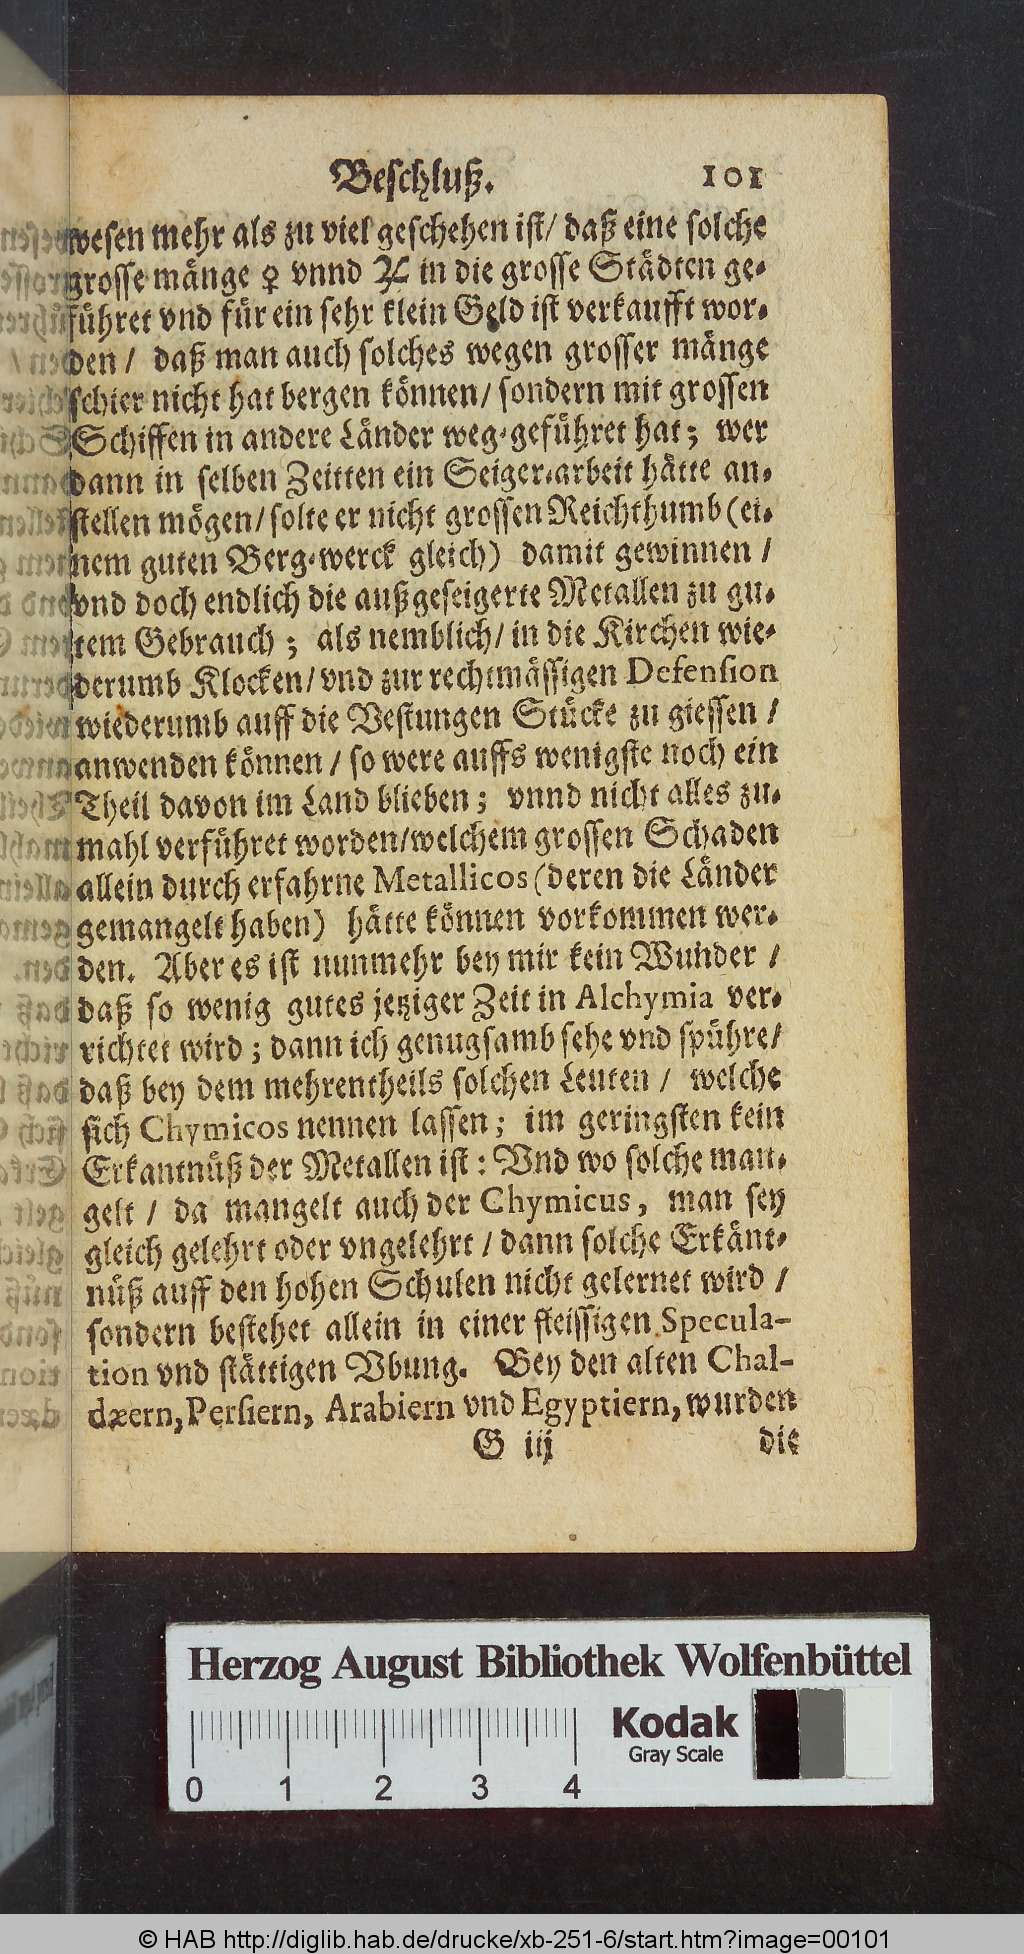 Beschluß. 101
wesen mehr als zu viel geschehen ist/ daß eine solche
grosse mänge ♀ vnnd ♃ in die grosse Städten ge-
führet vnd für ein sehr klein Geld ist verkaufft wor-
den / daß man auch solches wegen grosser mänge
schier nicht hat bergen können/ sondern mit grossen
Schiffen in andere Länder weg-geführet hat; wer
dann in selben Zeitten ein Seiger-arbeit hätte an-
stellen mögen/ solte er nicht grossen Reichthumb (ei-
nem guten Berg-werck gleich) damit gewinnen /
vnd doch endlich die außgeseigerte Metallen zu gu-
tem Gebrauch ; als nemblich/ in die Kirchen wie-
derumb Klocken/ vnd zur rechtmässigen Defension
wiederumb auff die Vestungen Stücke zu giessen /
anwenden können / so were auffs wenigste noch ein
Theil davon im Land blieben ; vnnd nicht alles zu-
mahl verführet worden/welchem grossen Schaden
allein durch erfahrne Metallicos (deren die Länder
gemangelt haben) hätte können vorkommen wer-
den. Aber es ist nunmehr bey mir kein Wunder /
daß so wenig gutes jetziger Zeit in Alchymia ver-
richtet wird ; dann ich genugsamb sehe vnd spühre/
daß bey dem mehrentheils solchen Leuten / welche
sich Chymicos nennen lassen ; im geringsten kein
Erkantnüß der Metallen ist : Vnd wo solche man-
gelt / da mangelt auch der Chymicus, man sey
gleich gelehrt oder vngelehrt / dann solche Erkänt-
nüß auff den hohen Schulen nicht gelernet wird /
sondern bestehet allein in einer fleissigen Specula-
tion vnd stättigen Vbung. Bey den alten Chal-
dæern, Persiern, Arabiern vnd Egyptiern, wurden
G iij die
Herzog August Bibliothek Wolfenbüttel
Kodak
Gray Scale
0 1 2 3 4
© HAB http://diglib.hab.de/drucke/xb-251-6/start.htm?image=00101